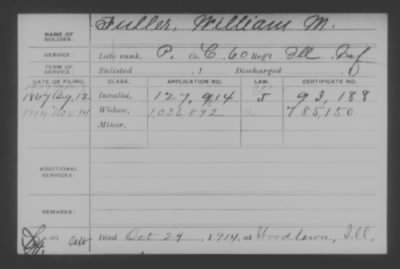 NAME OF SOLDIER: Fuller, William M.
SERVICE: Late rank, P. Co. C, 60 Reg't Ill Inf
TERM OF SERVICE: Enlisted , 1 Discharged , 1
DATE OF FILING. CLASS. APPLICATION NO. LAW. CERTIFICATE NO.
Aug. 12 Invalid, 127,914 J 93,188
1914 Nov 14 Widow, 1,036,892 785,150
Minor,
ADDITIONAL SERVICES:
REMARKS:
Died Oct 29, 1914, at Woodlawn, Ill.